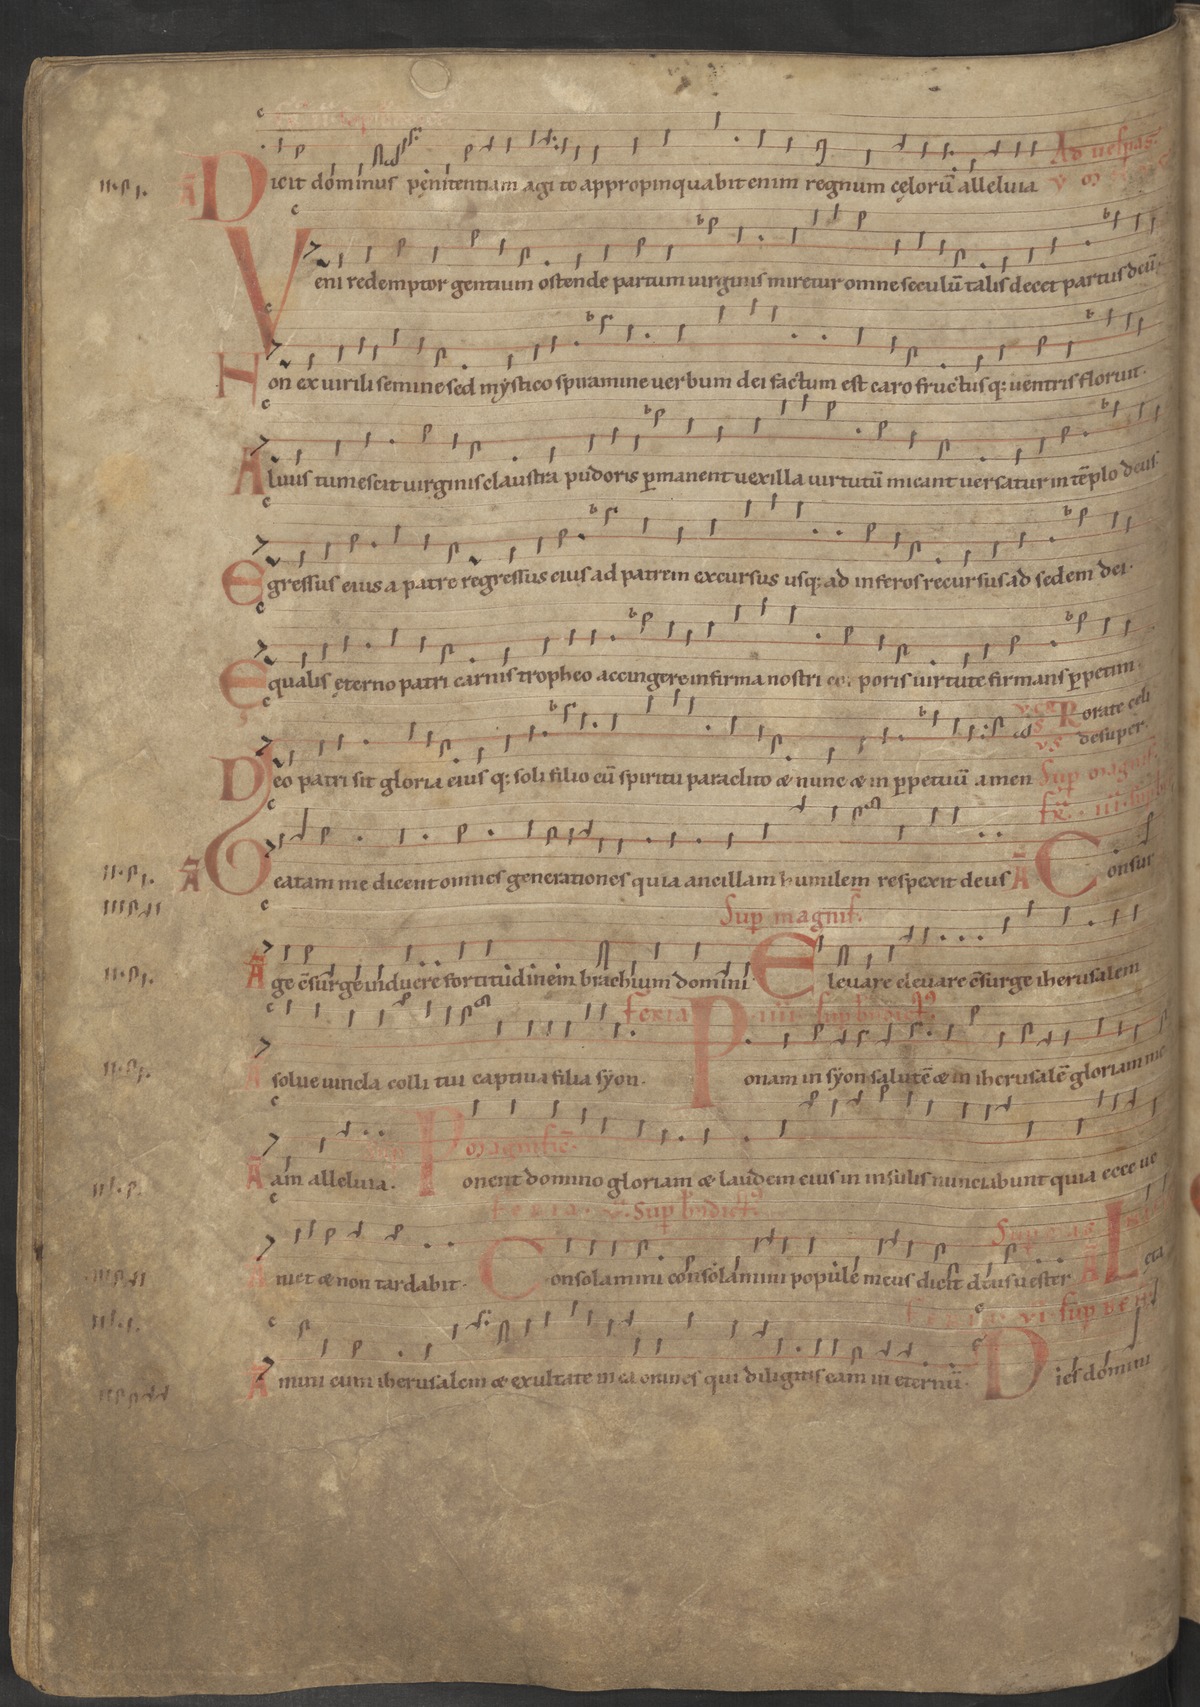 Dicit dominus penitentiam agite appropinquabit enim regnum cęlorū alleluia Ad uesp̄as.
Veni redemptor gentium ostende partum uirginis miretur omne seculū talis decet partus deū.
Non ex uirili semine sed mẏstico spiramine uerbum dei factum est caro fructusq: uentris floruit.
Aluus tumescit uirginis claustra pudoris p̄manent uexilla uirtutū micant uersatur in tēplo deus.
Egressus eius a patre regressus eius ad patrem excursus usq: ad inferos recursus ad sedem dei.
Ęqualis ęterno patri carnis tropheo accingere infirma nostri corporis uirtute firmans p̄petim.
Rorate celi
desuper.
Deo patri sit gloria eiusq: soli filio cū spiritu paraclito & nunc & in p̄petuū amen Sup magnif.
Beatam me dicent omnes generationes quia ancillam humilem respexit deus Ā Consur
Sup magnif.
Ā ge c̄surge induere fortitudinem brachium domini Eleuare eleuare c̄surge iherusalem
feria iiii sup bn̄dict̄
solue uincla colli tui captiua filia sẏon. Ponam in sẏon salutē & in iherusalē gloriam me
Sup magnific̄.
Ā am alleluia. Ponent domino gloriam & laudem eius in insulis nunciabunt quia ecce ue
feria v. Sup bn̄dict̄
A niet & non tardabit. Consolamini consolamini popule meus dicit deus uester Ā Leta
feria vi sup ben
Ā mini cum iherusalem & exultate in ea omnes qui diligitis eam in eternū. Dies domini